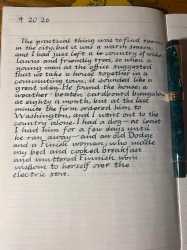 9 20 26
The practical thing was to find rooms
in the city, but it was a warm season,
and I had just left a country of wide
lawns and friendly trees, so when a
young man at the office suggested
that we take a house together in a
commuting town, it sounded like a
great idea. He found the house, a
weather-beaten cardboard bungalow
at eighty a month, but at the last
minute the firm ordered him to
Washington, and I went out to the
country alone. I had a dog — at least
I had him for a few days until
he ran away — and an old Dodge
and a Finnish woman, who made
my bed and cooked breakfast
and muttered Finnish
wisdom to herself over the
electric stove.